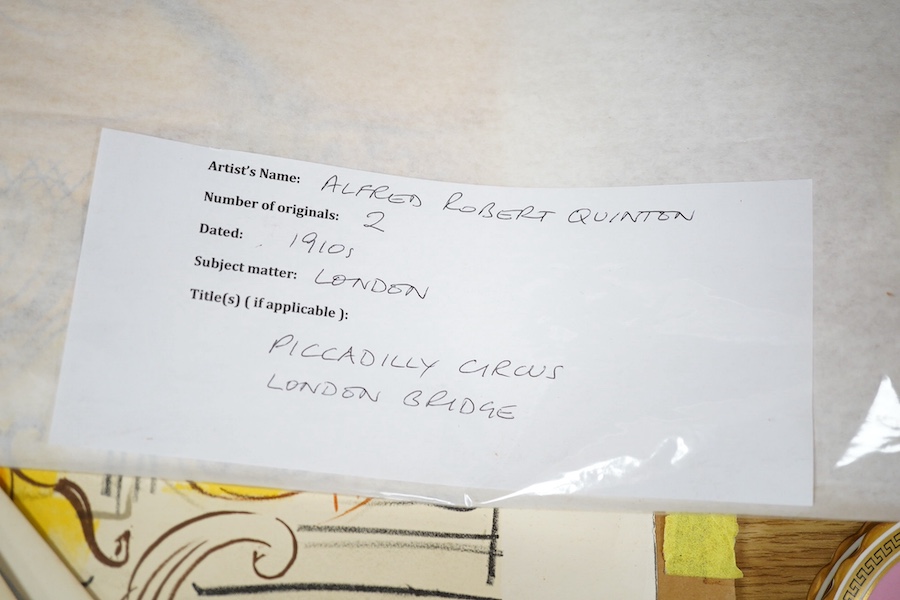 Artist's Name: ALFRED ROBERT QUINTON
Number of originals: 2
Dated: 1910s
Subject matter: LONDON
Title(s) ( if applicable ):
PICCADILLY CIRCUS
LONDON BRIDGE